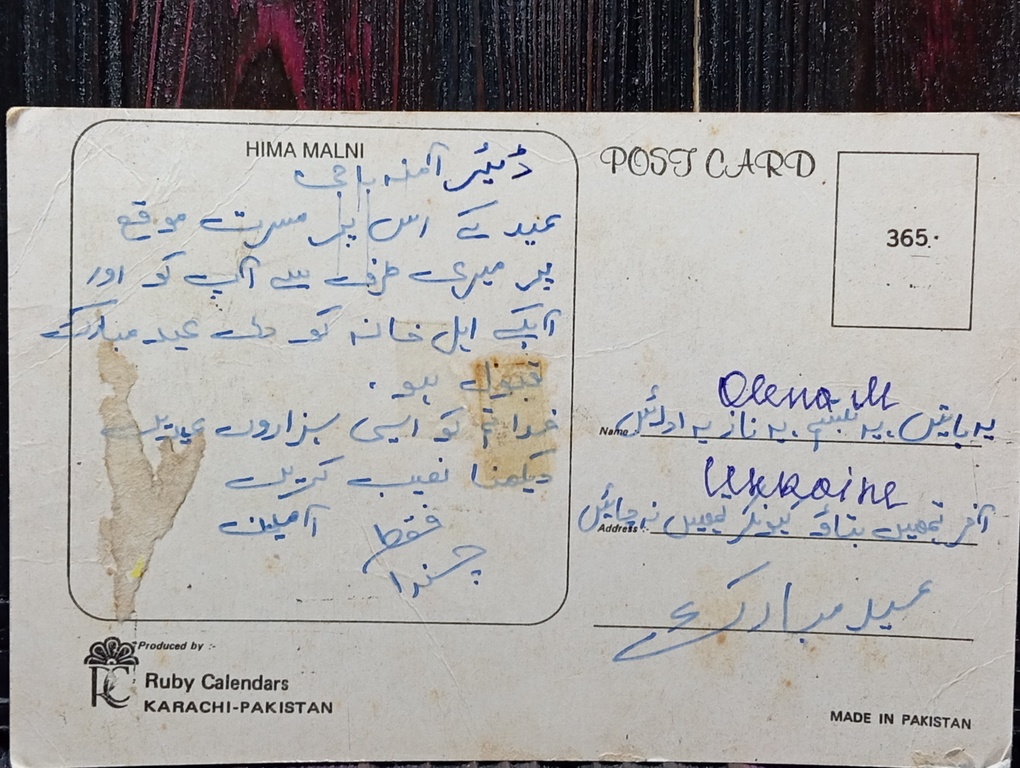 HIMA MALNI
ڈئیر آمنہ باجی
عید کے اس پر مسرت موقع
پر میری طرف سے آپ کو اور
آپکے اہل خانہ کو دلی عید مبارک
قبول ہو.
خدا تم کو ایسی ہزاروں عیدیں
دیکھنا نصیب کریں
آمین
فقط
چندا
Produced by :-
RC
Ruby Calendars
KARACHI-PAKISTAN
POST CARD
365.
Olena M
Name یہ باتیں، یہ تبسم، یہ ناز یہ ادائیں
Ukraine
Address: آخر تمھیں بتاؤ کیونکر تمھیں نہ چاہیں
عید مبارک
MADE IN PAKISTAN